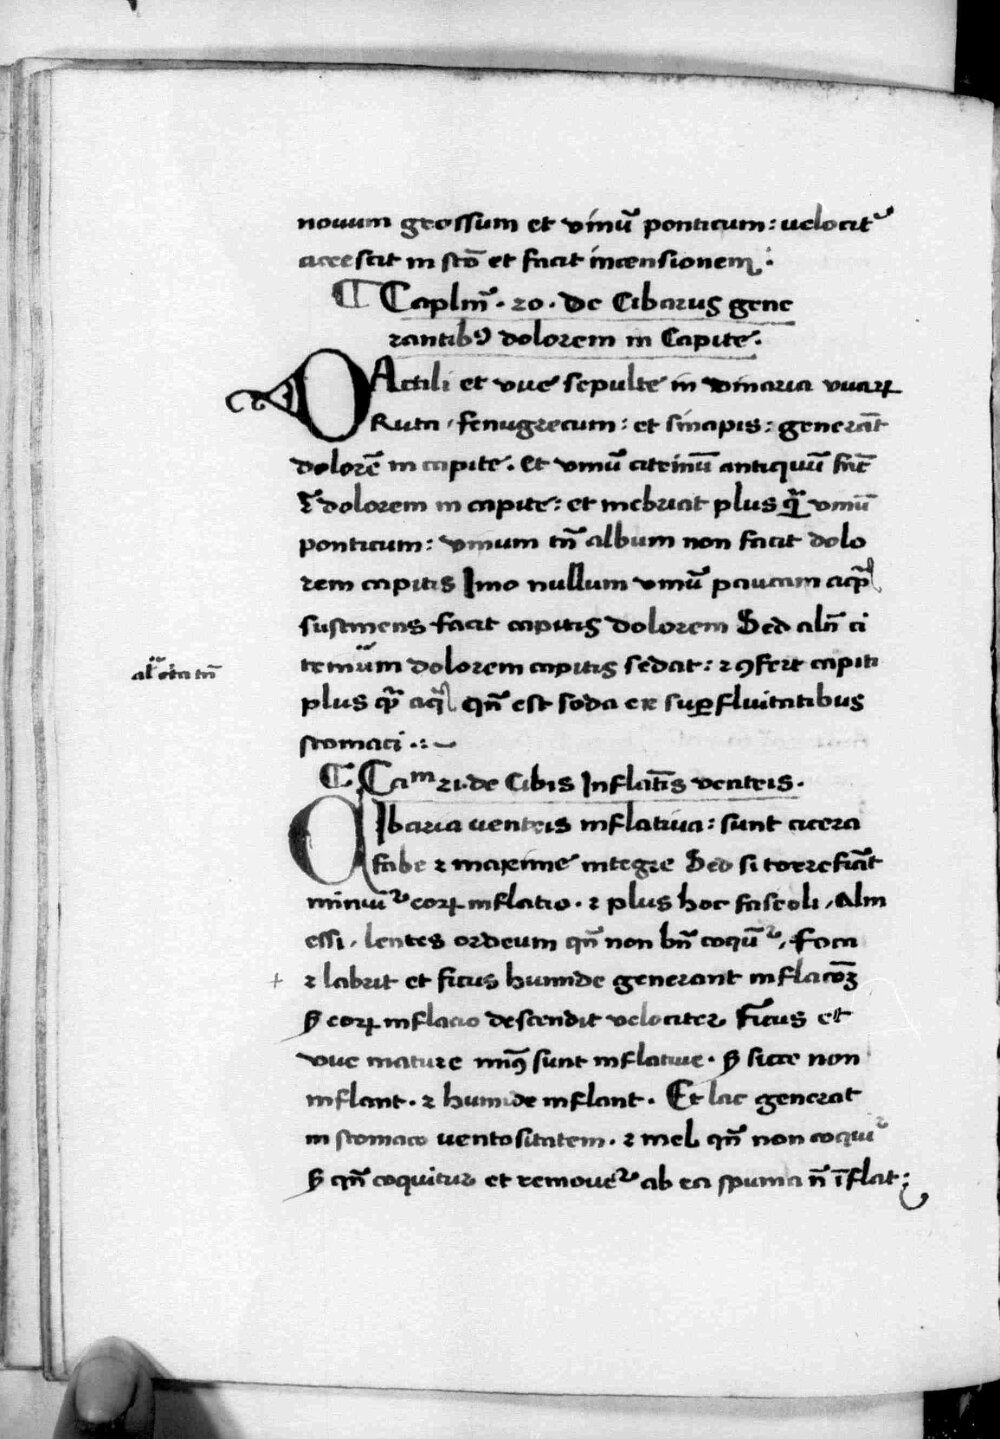 nouum grossum et vinū ponticum: uelocit᷑
acescit in stō et facit incensionem.
¶ Caplm̄. 20. de Cibarijs gene
rantibꝰ dolorem in Capite.
DActili et vue sepulte in vinaria vuaꝝ
Ruta, fenugrecum: et sinapis: generāt
dolorē in capite. Et vinū citrinū antiquū
dolorem in capite: et inebriat plus qͣ̄ vinū
ponticum: vinum tn̄ album non facit dolo
rem capitis Imo nullum vinū paucam aqͣ̄
sustinens facit capitis dolorem Sed alr̄ ci
al̓
trinum dolorem capitis sedat: ⁊ ꝯfert capiti
plus qͣ̄ aqͣ qn̄ est soda ex suꝑfluitatibus
stomaci.
¶ Caᵐ 21. de Cibis Inflatīs ventris.
CIbaria uentris inflatiua: sunt cicera
fabe ⁊ maxime integre Sed si torrefiāt
minuit᷑ eoꝝ inflatio. ⁊ plus hoc faseoli, Alm
essi, lentes ordeum qn̄ non bn̄ coqūt᷑,
+ ⁊ labrit et ficus humide generant inflacōꝫ
ꝫ eoꝝ inflacio descendit velociter ficus et
vue mature minꝰ sunt inflatiue. ꝫ sicce non
inflant. ⁊ humide inflant. Et lac generat
in stomaco uentositatem. ⁊ mel qn̄ non coquit᷑
ꝫ qn̄ coquitur et remouet᷑ ab ea spuma n̄ īflat: